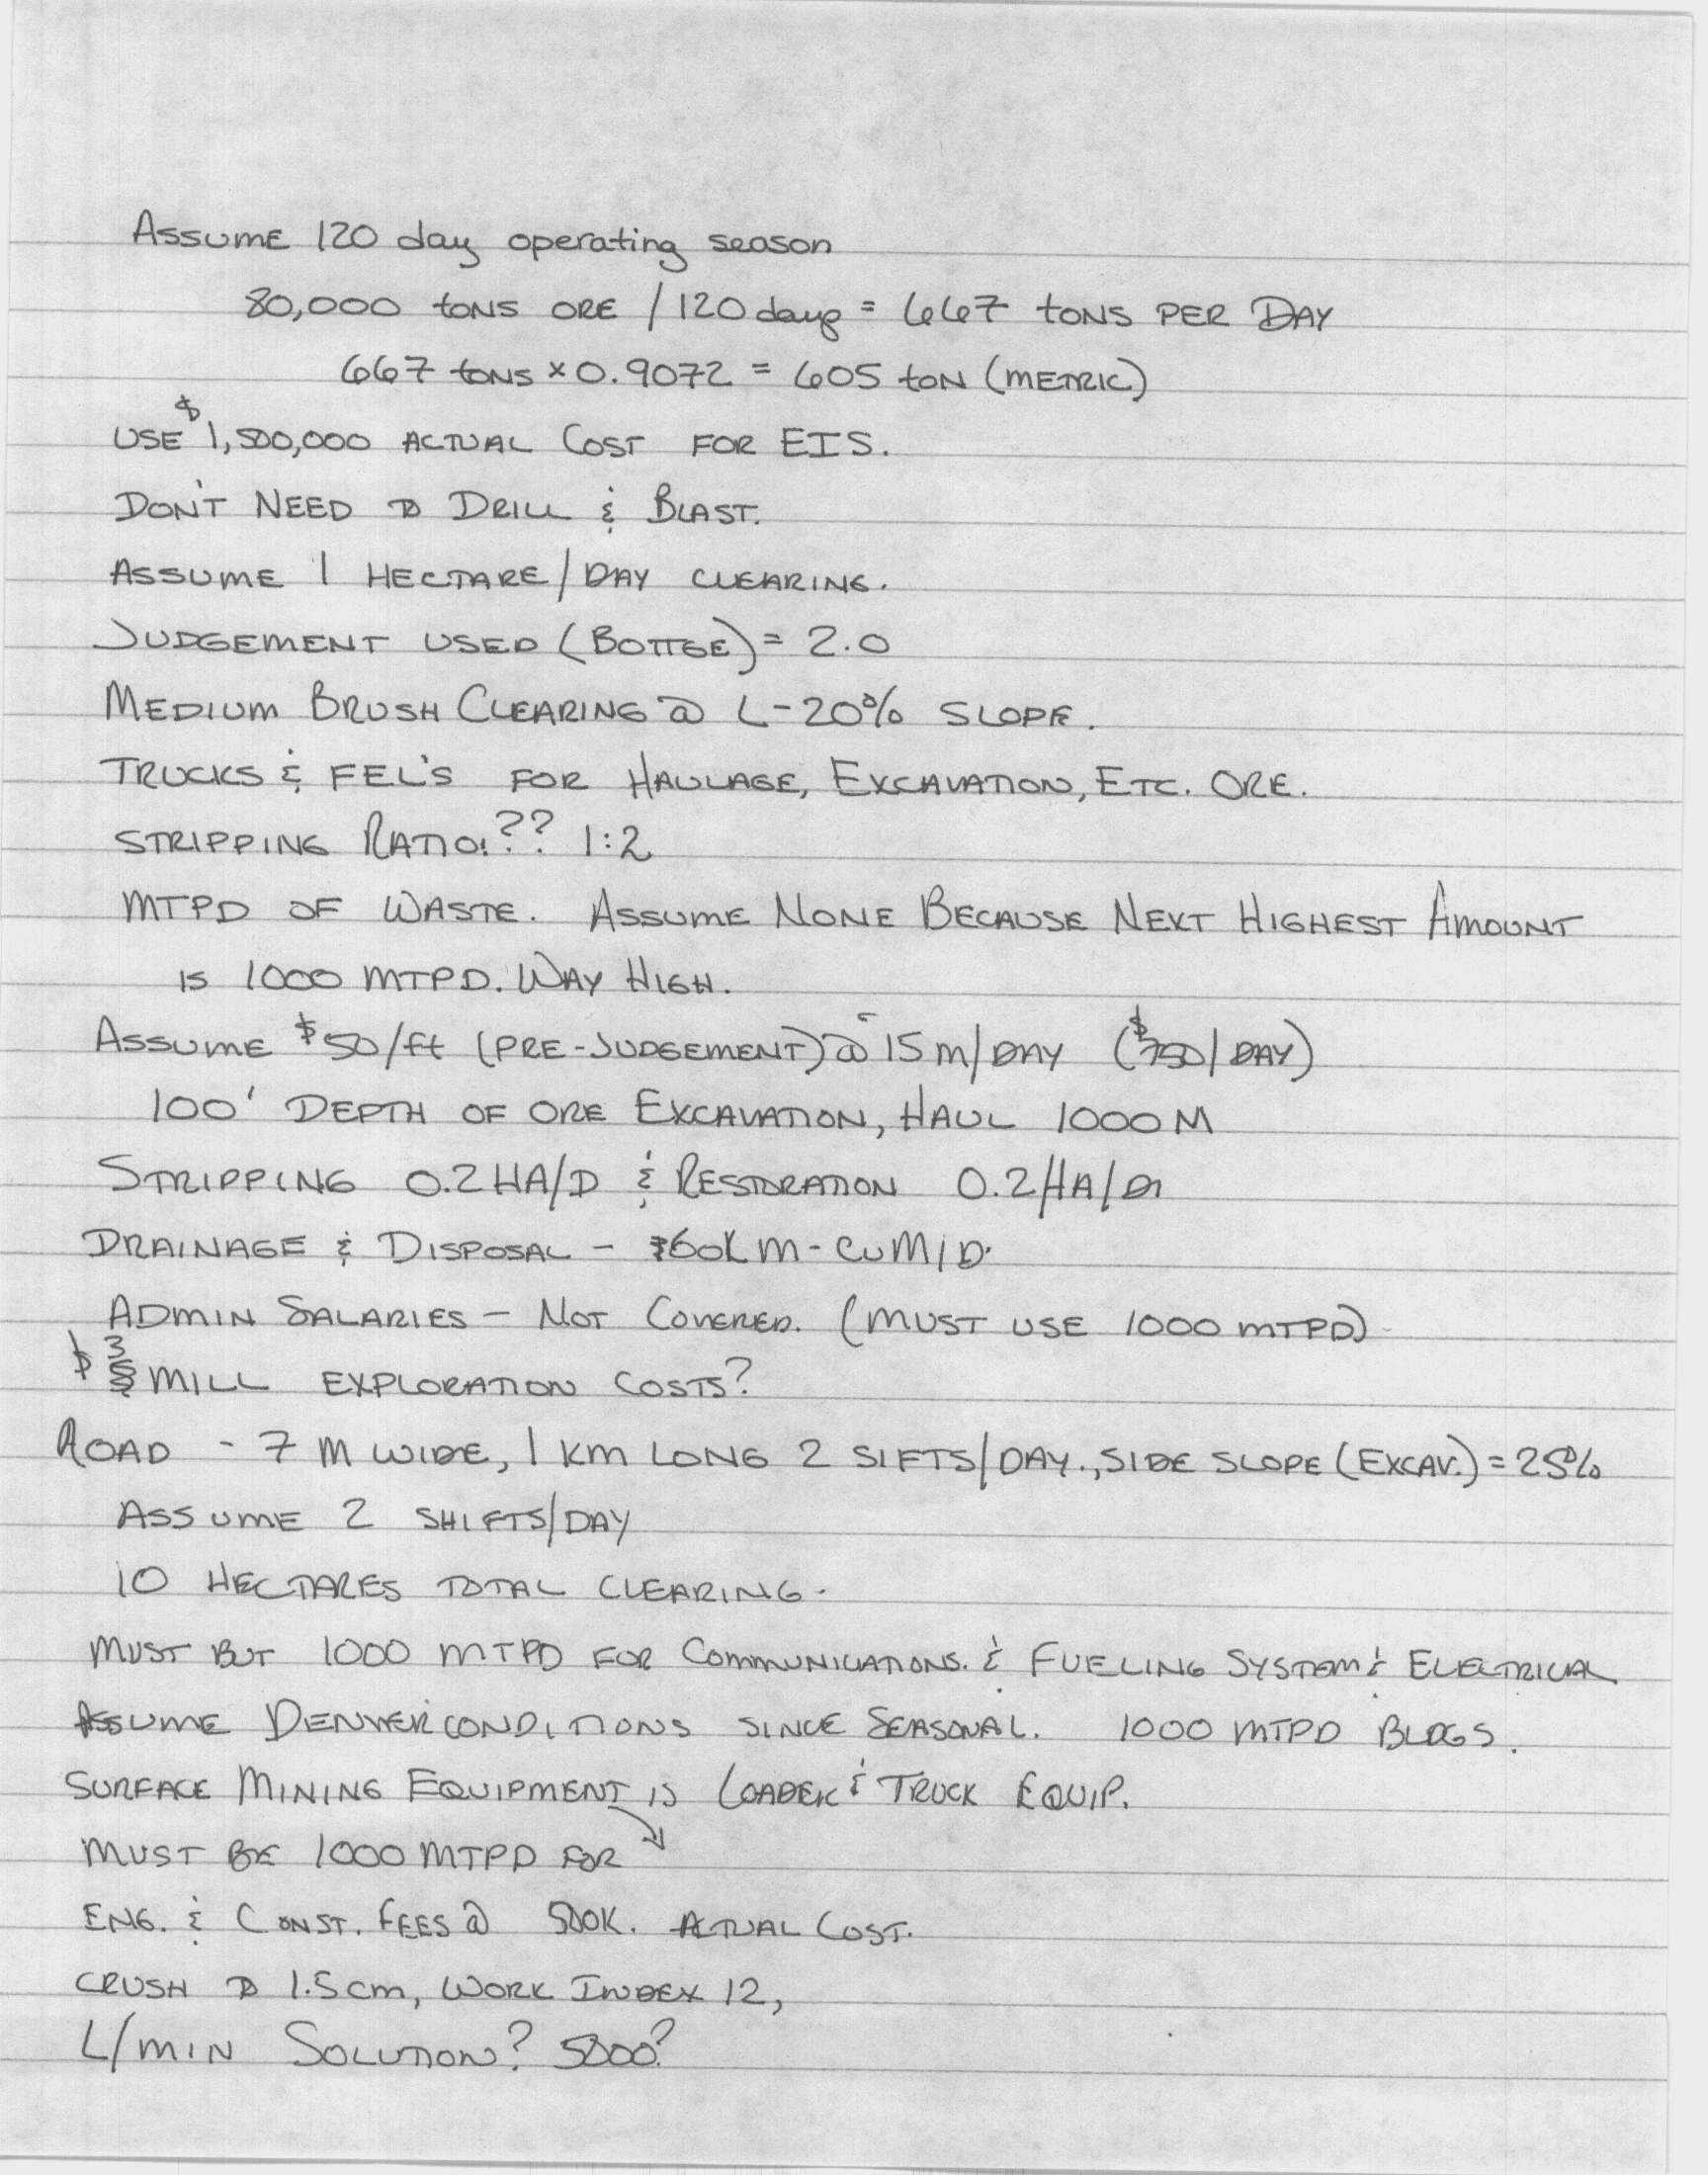 Assume 120 day operating season
80,000 tons ORE / 120 days = 667 tons PER DAY
667 tons x 0.9072 = 605 ton (METRIC)
USE $1,500,000 ACTUAL COST FOR EIS.
DON'T NEED TO DRILL & BLAST.
ASSUME 1 HECTARE/DAY CLEARING.
JUDGEMENT USED (BOTTGE) = 2.0
MEDIUM BRUSH CLEARING @ L-20% SLOPE.
TRUCKS & FEL'S FOR HAULAGE, EXCAVATION, ETC. ORE.
STRIPPING RATIO!?? 1:2
MTPD OF WASTE. ASSUME NONE BECAUSE NEXT HIGHEST AMOUNT
IS 1000 MTPD. WAY HIGH.
ASSUME $50/ft (PRE-JUDGEMENT) @ 15 m/DAY ($750/DAY)
100' DEPTH OF ORE EXCAVATION, HAUL 1000 M
STRIPPING 0.2 HA/D & RESTORATION 0.2 HA/D
DRAINAGE & DISPOSAL - 60K m-cuM/D.
ADMIN SALARIES - NOT COVERED. (MUST USE 1000 MTPD)
$3 MILL EXPLORATION COSTS?
ROAD - 7 M WIDE, 1 KM LONG 2 SIFTS/DAY., SIDE SLOPE (EXCAV.) = 25%
ASSUME 2 SHIFTS/DAY
10 HECTARES TOTAL CLEARING.
MUST BUT 1000 MTPD FOR COMMUNICATIONS. & FUELING SYSTEM & ELECTRICAL
ASSUME DENVER CONDITIONS SINCE SEASONAL. 1000 MTPD BLDGS.
SURFACE MINING EQUIPMENT IS LOADER & TRUCK EQUIP.
MUST BE 1000 MTPD FOR
ENG. & CONST. FEES @ 500K. ACTUAL COST.
CRUSH TO 1.5 cm, WORK INDEX 12,
L/MIN SOLUTION? 5000?